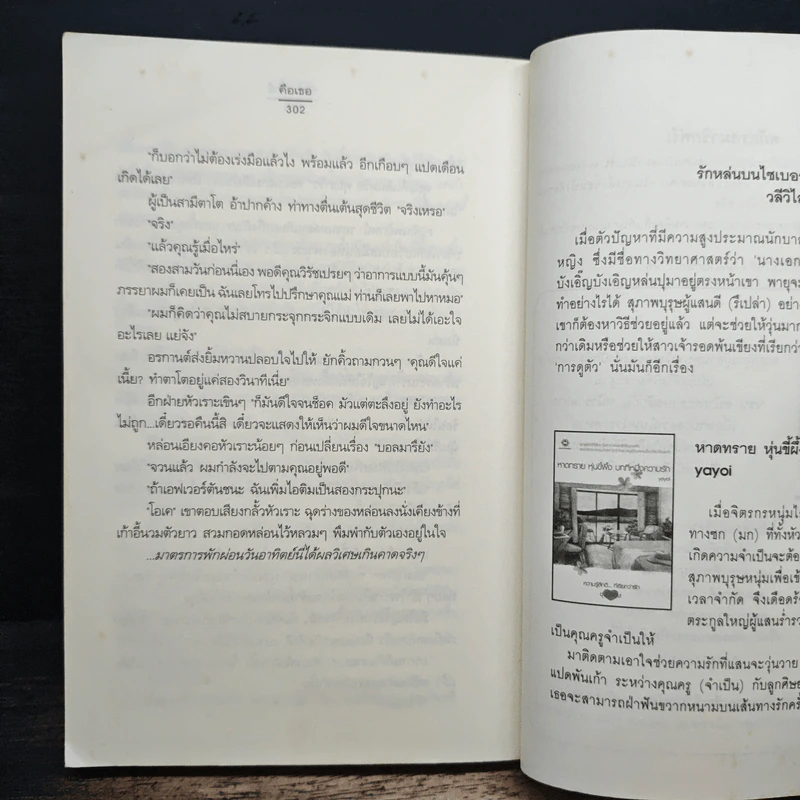 คือเธอ
302
"ก็บอกว่าไม่ต้องเร่งมือแล้วไง พร้อมแล้ว อีกเกือบๆ แปดเดือน
เกิดได้เลย"
ผู้เป็นสามีตาโต อ้าปากค้าง ท่าทางตื่นเต้นสุดชีวิต "จริงเหรอ"
"จริง"
"แล้วคุณรู้เมื่อไหร่"
"สองสามวันก่อนนี่เอง พอดีคุณวิรัชเปรยๆ ว่าอาการแบบนี้มันคุ้นๆ
ภรรยาผมก็เคยเป็น ฉันเลยโทรไปปรึกษาคุณแม่ ท่านก็เลยพาไปหาหมอ"
"ผมก็คิดว่าคุณไม่สบายกระจุกกระจิกแบบเดิม เลยไม่ได้เอะใจ
อะไรเลย แย่จัง"
อรกานต์ส่งยิ้มหวานปลอบใจไปให้ ยักคิ้วถามกวนๆ "คุณดีใจแค่
เนี้ย? ทำตาโตอยู่แค่สองวินาทีเนี่ย"
อีกฝ่ายหัวเราะเขินๆ "ก็มันดีใจจนช็อค มัวแต่ตะลึงอยู่ ยังทำอะไร
ไม่ถูก...เดี๋ยวรอคืนนี้สิ เดี๋ยวจะแสดงให้เห็นว่าผมดีใจขนาดไหน"
หล่อนเอียงคอหัวเราะน้อยๆ ก่อนเปลี่ยนเรื่อง "บอลมารึยัง"
"จวนแล้ว ผมกำลังจะไปตามคุณอยู่พอดี"
"ถ้าเอฟเวอร์ตันชนะ ฉันเพิ่มไอติมเป็นสองกระปุกนะ"
"โอเค" เขาตอบเสียงกลั้วหัวเราะ ฉุดร่างของหล่อนลงนั่งเคียงข้างที่
เก้าอี้นวมตัวยาว สวมกอดหล่อนไว้หลวมๆ พึมพำกับตัวเองอยู่ในใจ
...มาตรการพักผ่อนวันอาทิตย์นี่ได้ผลวิเศษเกินคาดจริงๆ
รักหล่นบนไซเบอร์
วลีวิไล
เมื่อตัวปัญหาที่มีความสูงประมาณนักบาส
หญิง ซึ่งมีชื่อทางวิทยาศาสตร์ว่า 'นางเอก'
บังเอิ๊ญบังเอิญหล่นปุมาอยู่ตรงหน้าเขา พายุจะ
ทำอย่างไรได้ สุภาพบุรุษผู้แสนดี (รึเปล่า) อย่าง
เขาก็ต้องหาวิธีช่วยอยู่แล้ว แต่จะช่วยให้วุ่นมาก
กว่าเดิมหรือช่วยให้สาวเจ้ารอดพ้นเขียงที่เรียกว่า
'การดูตัว' นั่นมันก็อีกเรื่อง
หาดทราย หุ่นขี้ผึ้ง
yayoi
หาดทราย หุ่นขี้ผึ้ง บทที่หนึ่งความรัก
yayoi
ความรู้สึกดี... ที่เรียกว่ารัก
เมื่อจิตรกรหนุ่มไ
ทางซก (มก) ที่ทั้งหัว
เกิดความจำเป็นจะต้อ
สุภาพบุรุษหนุ่มเพื่อเข้
เวลาจำกัด จึงเดือดร้
ตระกูลใหญ่ผู้แสนร่ำรว
เป็นคุณครูจำเป็นให้
มาติดตามเอาใจช่วยความรักที่แสนจะวุ่นวาย
แปดพันเก้า ระหว่างคุณครู (จำเป็น) กับลูกศิษย์
เธอจะสามารถฝ่าฟันขวากหนามบนเส้นทางรักครั้